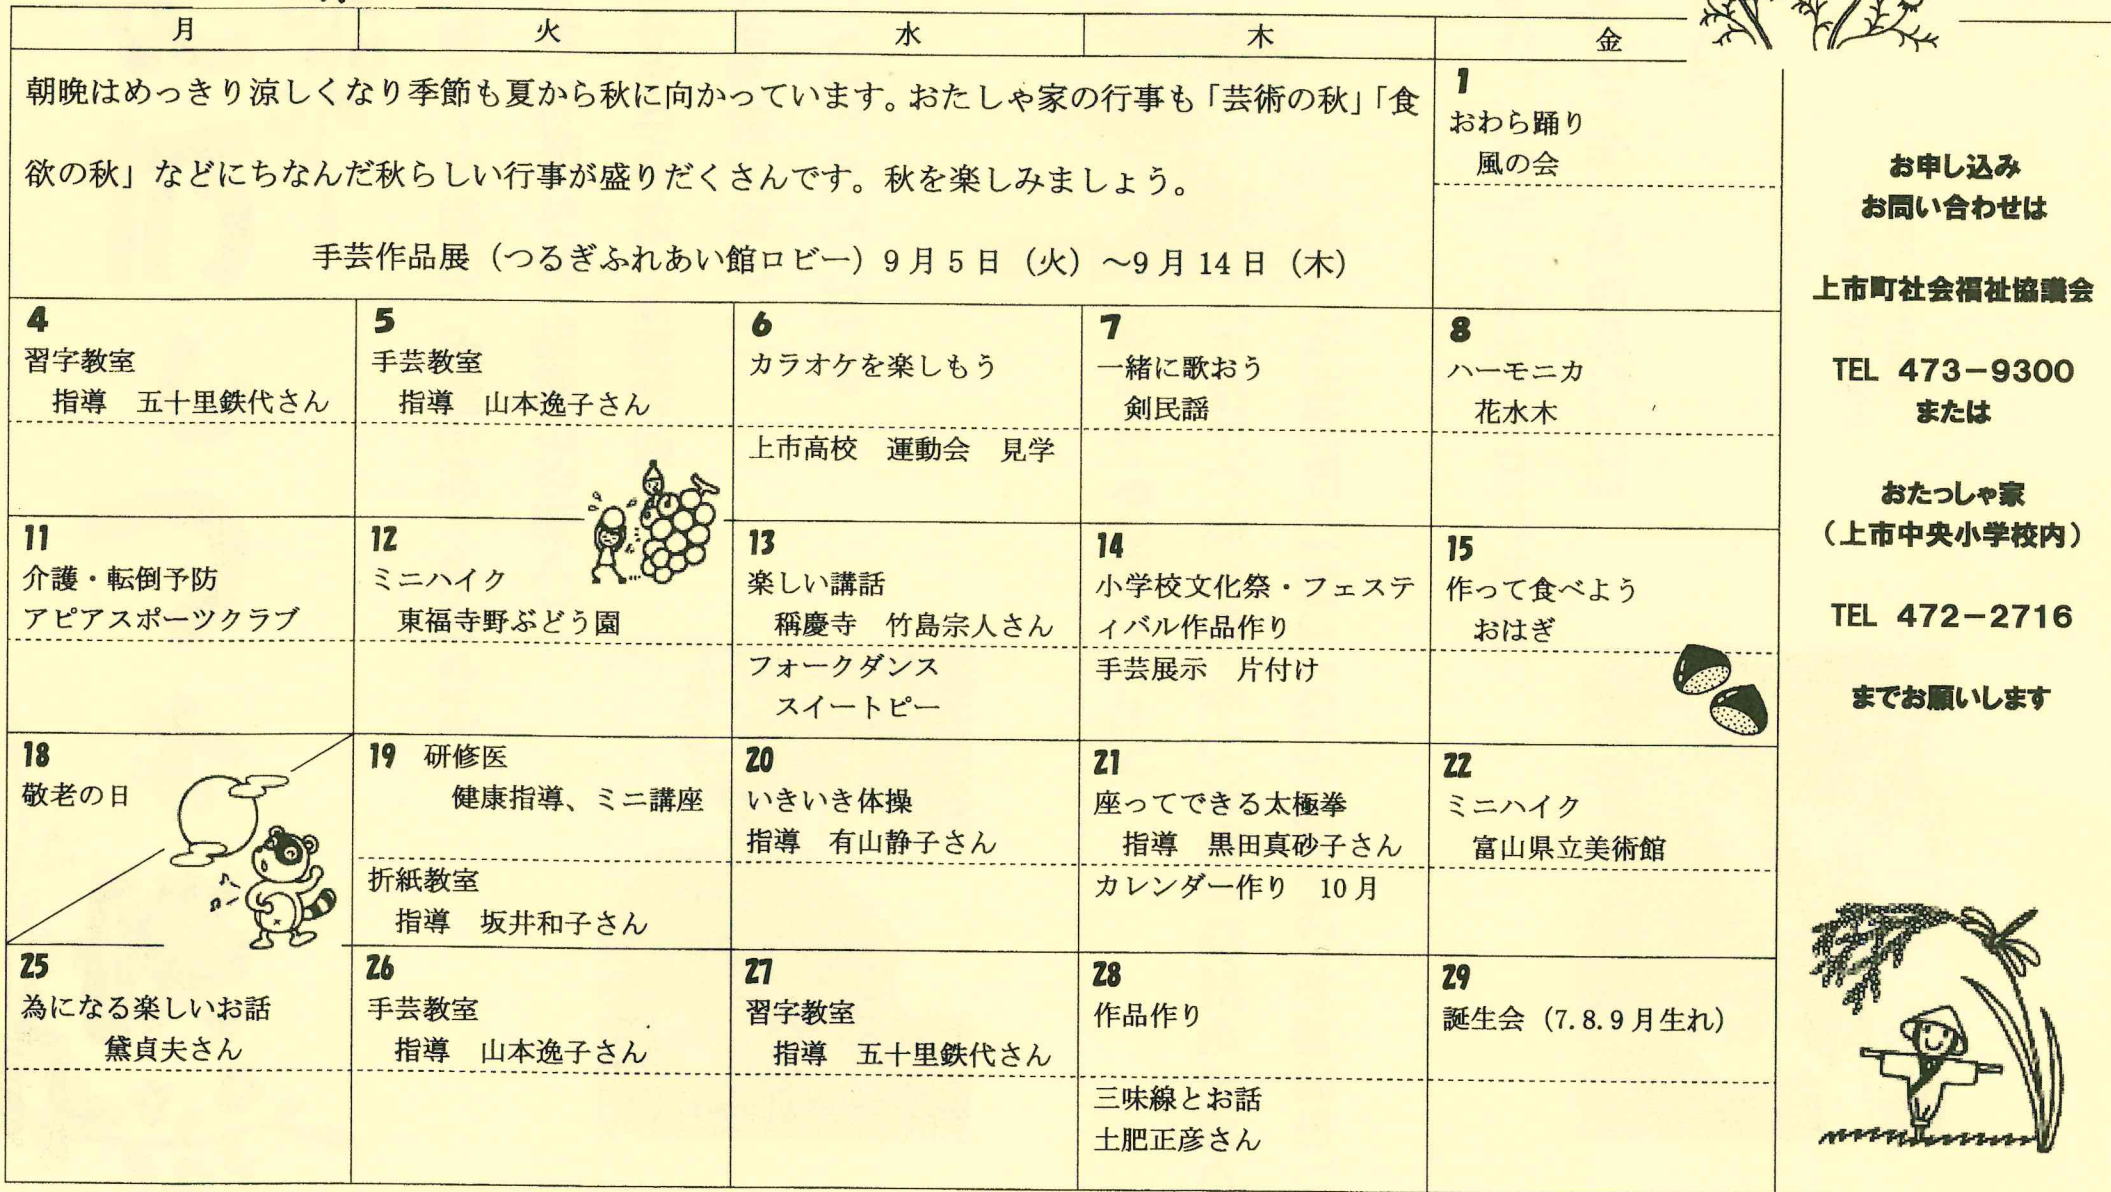 月
火
水
木
金
朝晩はめっきり涼しくなり季節も夏から秋に向かっています。おたしゃ家の行事も「芸術の秋」「食
欲の秋」などにちなんだ秋らしい行事が盛りだくさんです。秋を楽しみましょう。
手芸作品展（つるぎふれあい館ロビー）9月5日（火）～9月14日（木）
1
おわら踊り
風の会
4
習字教室
指導　五十里鉄代さん
5
手芸教室
指導　山本逸子さん
6
カラオケを楽しもう
上市高校　運動会　見学
7
一緒に歌おう
剣民謡
8
ハーモニカ
花水木
11
介護・転倒予防
アピアスポーツクラブ
12
ミニハイク
東福寺野ぶどう園
13
楽しい講話
稱慶寺　竹島宗人さん
フォークダンス
スイートピー
14
小学校文化祭・フェステ
ィバル作品作り
手芸展示　片付け
15
作って食べよう
おはぎ
18
敬老の日
19　研修医
健康指導、ミニ講座
折紙教室
指導　坂井和子さん
20
いきいき体操
指導　有山静子さん
21
座ってできる太極拳
指導　黒田真砂子さん
カレンダー作り　10月
22
ミニハイク
富山県立美術館
25
為になる楽しいお話
黛貞夫さん
26
手芸教室
指導　山本逸子さん
27
習字教室
指導　五十里鉄代さん
28
作品作り
三味線とお話
土肥正彦さん
29
誕生会（7.8.9月生れ）
お申し込み
お問い合わせは
上市町社会福祉協議会
TEL 473－9300
または
おたっしゃ家
（上市中央小学校内）
TEL 472－2716
までお願いします